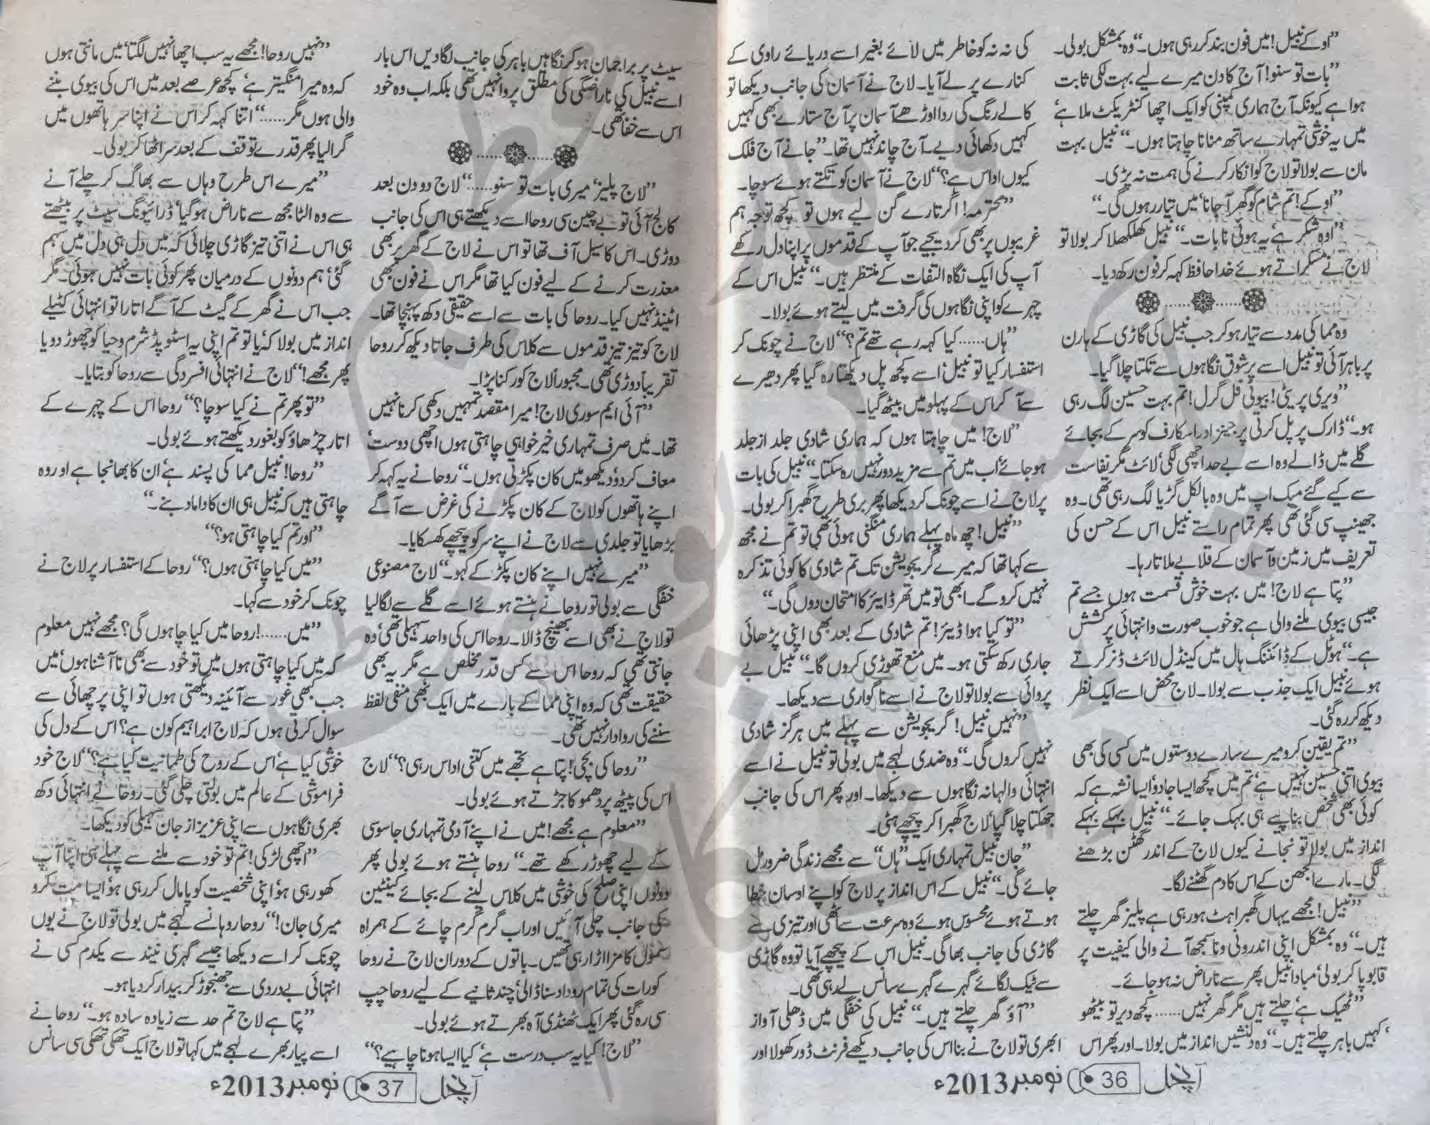 ”اوکے نبیل! میں فون بند کر رہی ہوں۔“ وہ بمشکل بولی۔
”بات تو سنو! آج کا دن میرے لیے بہت لکی ثابت
ہوا ہے کیونکہ آج ہماری کمپنی کو ایک اچھا کنٹریکٹ ملا ہے‘
میں یہ خوشی تمہارے ساتھ منانا چاہتا ہوں۔“ نبیل بہت
مان سے بولا تو لاج کو انکار کرنے کی ہمت نہ پڑی۔
”اوکے! تم شام کو گھر آجانا‘ میں تیار رہوں گی۔“
”اوہ شکر ہے‘ یہ ہوئی نا بات۔“ نبیل کھلکھلا کر بولا تو
لاج نے مسکراتے ہوئے خدا حافظ کہہ کر فون رکھ دیا۔
وہ مما کی مدد سے تیار ہو کر جب نبیل کی گاڑی کے ہارن
پر باہر آئی تو نبیل اسے پرشوق نگاہوں سے تکتا چلا گیا۔
”ویری پریٹی! بیوٹی فل گرل! تم بہت حسین لگ رہی
ہو۔“ ڈارک پرپل کرتی پر جینز اور اسکارف کو سر کے بجائے
گلے میں ڈالے وہ اسے بے حد اچھی لگی‘ لائٹ مگر نفاست
سے کیے گئے میک اپ میں وہ بالکل گڑیا لگ رہی تھی۔ وہ
جھینپ سی گئی تھی پھر تمام راستے نبیل اس کے حسن کی
تعریف میں زمین و آسمان کے قلابے ملاتا رہا۔
”پتا ہے لاج! میں بہت خوش قسمت ہوں جسے تم
جیسی بیوی ملنے والی ہے جو خوب صورت و انتہائی پرکشش
ہے۔“ ہوٹل کے ڈائننگ ہال میں کینڈل لائٹ ڈنر کرتے
ہوئے نبیل ایک جذب سے بولا۔ لاج محض اسے ایک نظر
دیکھ کر رہ گئی۔
”تم یقین کرو میرے سارے دوستوں میں کسی کی بھی
بیوی اتنی حسین نہیں ہے‘ تم میں کچھ ایسا جادو‘ ایسا نشہ ہے کہ
کوئی بھی شخص بنا پیے ہی بہک جائے۔“ نبیل بہکے بہکے
انداز میں بولا تو نجانے کیوں لاج کے اندر گھٹن بڑھنے
لگی۔ مارے الجھن کے اس کا دم گھٹنے لگا۔
”نبیل! مجھے یہاں گھبراہٹ ہو رہی ہے پلیز گھر چلتے
ہیں۔“ وہ بمشکل اپنی اندرونی و ناسمجھ آنے والی کیفیت پر
قابو پا کر بولی‘ مبادا نبیل پھر سے ناراض نہ ہو جائے۔
”ٹھیک ہے‘ چلتے ہیں مگر گھر نہیں...... کچھ دیر تو بیٹھو
کہیں باہر چلتے ہیں۔“ وہ دلنشیں انداز میں بولا۔ اور پھر اس
کی نہ نہ کو خاطر میں لائے بغیر اسے دریائے راوی کے
کنارے پر لے آیا۔ لاج نے آسمان کی جانب دیکھا تو
کالے رنگ کی ردا اوڑھے آسمان پر آج ستارے بھی کہیں
کہیں دکھائی دیے۔ آج چاند نہیں تھا۔ ”جانے آج فلک
کیوں اداس ہے؟“ لاج نے آسمان کو تکتے ہوئے سوچا۔
”محترمہ! اگر تارے گن لیے ہوں تو کچھ توجہ ہم
غریبوں پر بھی کر دیجیے جو آپ کے قدموں پر اپنا دل رکھے
آپ کی ایک نگاہ التفات کے منتظر ہیں۔“ نبیل اس کے
چہرے کو اپنی نگاہوں کی گرفت میں لیتے ہوئے بولا۔
”ہاں...... کیا کہہ رہے تھے تم؟“ لاج نے چونک کر
استفسار کیا تو نبیل‘ اسے کچھ پل دیکھتا رہ گیا پھر دھیرے
سے آ کر اس کے پہلو میں بیٹھ گیا۔
”لاج! میں چاہتا ہوں کہ ہماری شادی جلد از جلد
ہو جائے‘ اب میں تم سے مزید دور نہیں رہ سکتا۔“ نبیل کی بات
پر لاج نے اسے چونک کر دیکھا پھر بری طرح گھبرا کر بولی۔
”نبیل! چھ ماہ پہلے ہماری منگنی ہوئی تھی تو تم نے مجھ
سے کہا تھا کہ میرے گریجویشن تک تم شادی کا کوئی تذکرہ
نہیں کرو گے۔ ابھی تو میں تھرڈ ایئر کا امتحان دوں گی۔“
”تو کیا ہوا ڈیئر! تم شادی کے بعد بھی اپنی پڑھائی
جاری رکھ سکتی ہو۔ میں منع تھوڑی کروں گا۔“ نبیل بے
پروائی سے بولا تو لاج نے اسے ناگواری سے دیکھا۔
”نہیں نبیل! گریجویشن سے پہلے میں ہرگز شادی
نہیں کروں گی۔“ وہ ضدی لہجے میں بولی تو نبیل نے اسے
انتہائی والہانہ نگاہوں سے دیکھا۔ اور پھر اس کی جانب
جھکتا چلا گیا‘ لاج گھبرا کر پیچھے ہٹی۔
”جان نبیل تمہاری ایک ”ہاں“ سے مجھے زندگی ضرور مل
جائے گی۔“ نبیل کے اس انداز پر لاج کو اپنے اوسان خطا
ہوتے ہوئے محسوس ہوئے وہ سرعت سے اٹھی اور تیزی سے
گاڑی کی جانب بھاگی۔ نبیل اس کے پیچھے آیا تو وہ گاڑی
سے ٹیک لگائے گہرے گہرے سانس لے رہی تھی۔
”آؤ گھر چلتے ہیں۔“ نبیل کی خفگی میں ڈھلی آواز
ابھری تو لاج نے بنا اس کی جانب دیکھے فرنٹ ڈور کھولا اور
آنچل 36 نومبر 2013ء
سیٹ پر براجمان ہو کر نگاہیں باہر کی جانب لگا دیں اس بار
اسے نبیل کی ناراضگی کی مطلق پروا نہیں تھی بلکہ اب وہ خود
اس سے خفا تھی۔
”لاج پلیز‘ میری بات تو سنو.....“ لاج دو دن بعد
کالج آئی تو بے چین سی روحا اسے دیکھتے ہی اس کی جانب
دوڑی۔ اس کا سیل آف تھا تو اس نے لاج کے گھر پر بھی
معذرت کرنے کے لیے فون کیا تھا مگر اس نے فون بھی
اٹینڈ نہیں کیا۔ روحا کی بات سے اسے حقیقی دکھ پہنچا تھا۔
لاج کو تیز تیز قدموں سے کلاس کی طرف جاتا دیکھ کر روحا
تقریباً دوڑی تھی۔ مجبوراً لاج کو رکنا پڑا۔
”آئی ایم سوری لاج! میرا مقصد تمہیں دکھی کرنا نہیں
تھا۔ میں صرف تمہاری خیر خواہی چاہتی ہوں اچھی دوست‘
معاف کر دو‘ دیکھو میں کان پکڑتی ہوں۔“ روحا نے یہ کہہ کر
اپنے ہاتھوں کو لاج کے کان پکڑنے کی غرض سے آگے
بڑھایا تو جلدی سے لاج نے اپنے سر کو پیچھے کھسکایا۔
”میرے نہیں اپنے کان پکڑ کے کہو۔“ لاج مصنوعی
خفگی سے بولی تو روحا نے ہنستے ہوئے اسے گلے سے لگا لیا
تو لاج نے بھی اسے بھینچ ڈالا۔ روحا اس کی واحد سہیلی تھی‘ وہ
جانتی تھی کہ روحا اس سے کس قدر مخلص ہے مگر یہ بھی
حقیقت تھی کہ وہ اپنی مما کے بارے میں ایک بھی منفی لفظ
سننے کی روادار نہیں تھی۔
”روحا کی بچی! پتا ہے تجھے میں کتنی اداس رہی؟“ لاج
اس کی پیٹھ پر دھموکا جڑتے ہوئے بولی۔
”معلوم ہے مجھے! میں نے اپنے آدمی تمہاری جاسوسی
کے لیے چھوڑ رکھے تھے۔“ روحا ہنستے ہوئے بولی پھر
دونوں اپنی صلح کی خوشی میں کلاس لینے کے بجائے کینٹین
کی جانب چلی آئیں اور اب گرم گرم چائے کے ہمراہ
سموسوں کا مزا اڑا رہی تھیں۔ باتوں کے دوران لاج نے روحا
کو رات کی تمام روداد سنا ڈالی‘ چند ثانیے کے لیے روحا چپ
سی رہ گئی پھر ایک ٹھنڈی آہ بھرتے ہوئے بولی۔
”لاج! کیا یہ سب درست ہے‘ کیا ایسا ہونا چاہیے؟“
”نہیں روحا! مجھے یہ سب اچھا نہیں لگتا‘ میں مانتی ہوں
کہ وہ میرا منگیتر ہے‘ کچھ عرصے بعد میں اس کی بیوی بننے
والی ہوں مگر......“ اتنا کہہ کر اس نے اپنا سر ہاتھوں میں
گرا لیا پھر قدرے توقف کے بعد سر اٹھا کر بولی۔
”میرے اس طرح وہاں سے بھاگ کر چلے آنے
سے وہ الٹا مجھ سے ناراض ہو گیا‘ ڈرائیونگ سیٹ پر بیٹھتے
ہی اس نے اتنی تیز گاڑی چلائی کہ میں دل ہی دل میں سہم
گئی‘ ہم دونوں کے درمیان پھر کوئی بات نہیں ہوئی۔ مگر
جب اس نے گھر کے گیٹ کے آگے اتارا تو انتہائی کٹیلے
انداز میں بولا کہ‘ یا تو تم اپنی یہ اسٹوپڈ شرم و حیا کو چھوڑ دو یا
پھر مجھے!“ لاج نے انتہائی افسردگی سے روحا کو بتایا۔
”تو پھر تم نے کیا سوچا؟“ روحا اس کے چہرے کے
اتار چڑھاؤ کو بغور دیکھتے ہوئے بولی۔
”روحا! نبیل مما کی پسند ہے‘ ان کا بھانجا ہے اور وہ
چاہتی ہیں کہ نبیل ہی ان کا داماد بنے۔“
”اور تم کیا چاہتی ہو؟“
”میں کیا چاہتی ہوں؟“ روحا کے استفسار پر لاج نے
چونک کر خود سے کہا۔
”میں......! روحا میں کیا چاہوں گی؟ مجھے نہیں معلوم
کہ میں کیا چاہتی ہوں میں تو خود سے بھی ناآشنا ہوں‘ میں
جب کبھی غور سے آئینہ دیکھتی ہوں تو اپنی پرچھائی سے
سوال کرتی ہوں کہ لاج ابراہیم کون ہے؟ اس کے دل کی
خوشی کیا ہے‘ اس کے روح کی طمانیت کیا ہے؟“ لاج خود
فراموشی کے عالم میں بولتی چلی گئی۔ روحا نے انتہائی دکھ
بھری نگاہوں سے اپنی عزیز از جان سہیلی کو دیکھا۔
”اچھی لڑکی! تم تو خود سے ملنے سے پہلے ہی اپنا آپ
کھو رہی ہو‘ اپنی شخصیت کو پامال کر رہی ہو‘ ایسا مت کرو
میری جان!“ روحا روہانسے لہجے میں بولی تو لاج نے یوں
چونک کر اسے دیکھا جیسے گہری نیند سے یکدم کسی نے
انتہائی بے دردی سے جھنجوڑ کر بیدار کر دیا ہو۔
”پتا ہے لاج تم حد سے زیادہ سادہ ہو۔“ روحا نے
اسے پیار بھرے لہجے میں کہا تو لاج ایک تھکی تھکی سی سانس
آنچل 37 نومبر 2013ء